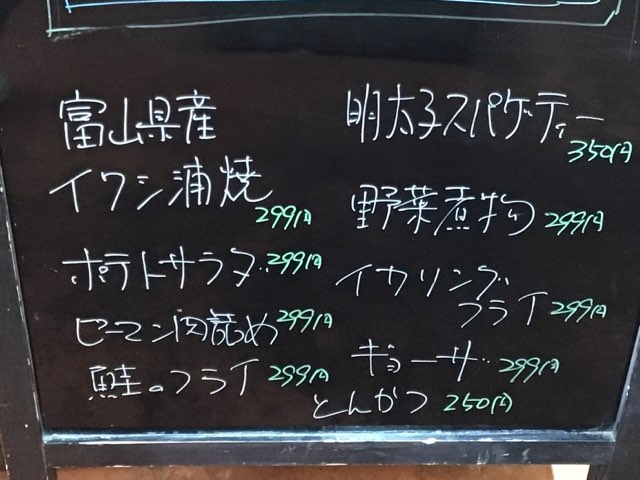 富山県産
イワシ浦焼 299円
ポテトサラダ 299円
ピーマン肉詰め 299円
鮭のフライ 299円
明太子スパゲティー 350円
野菜煮物 299円
イカリング
フライ 299円
ギョーザ 299円
とんかつ 250円